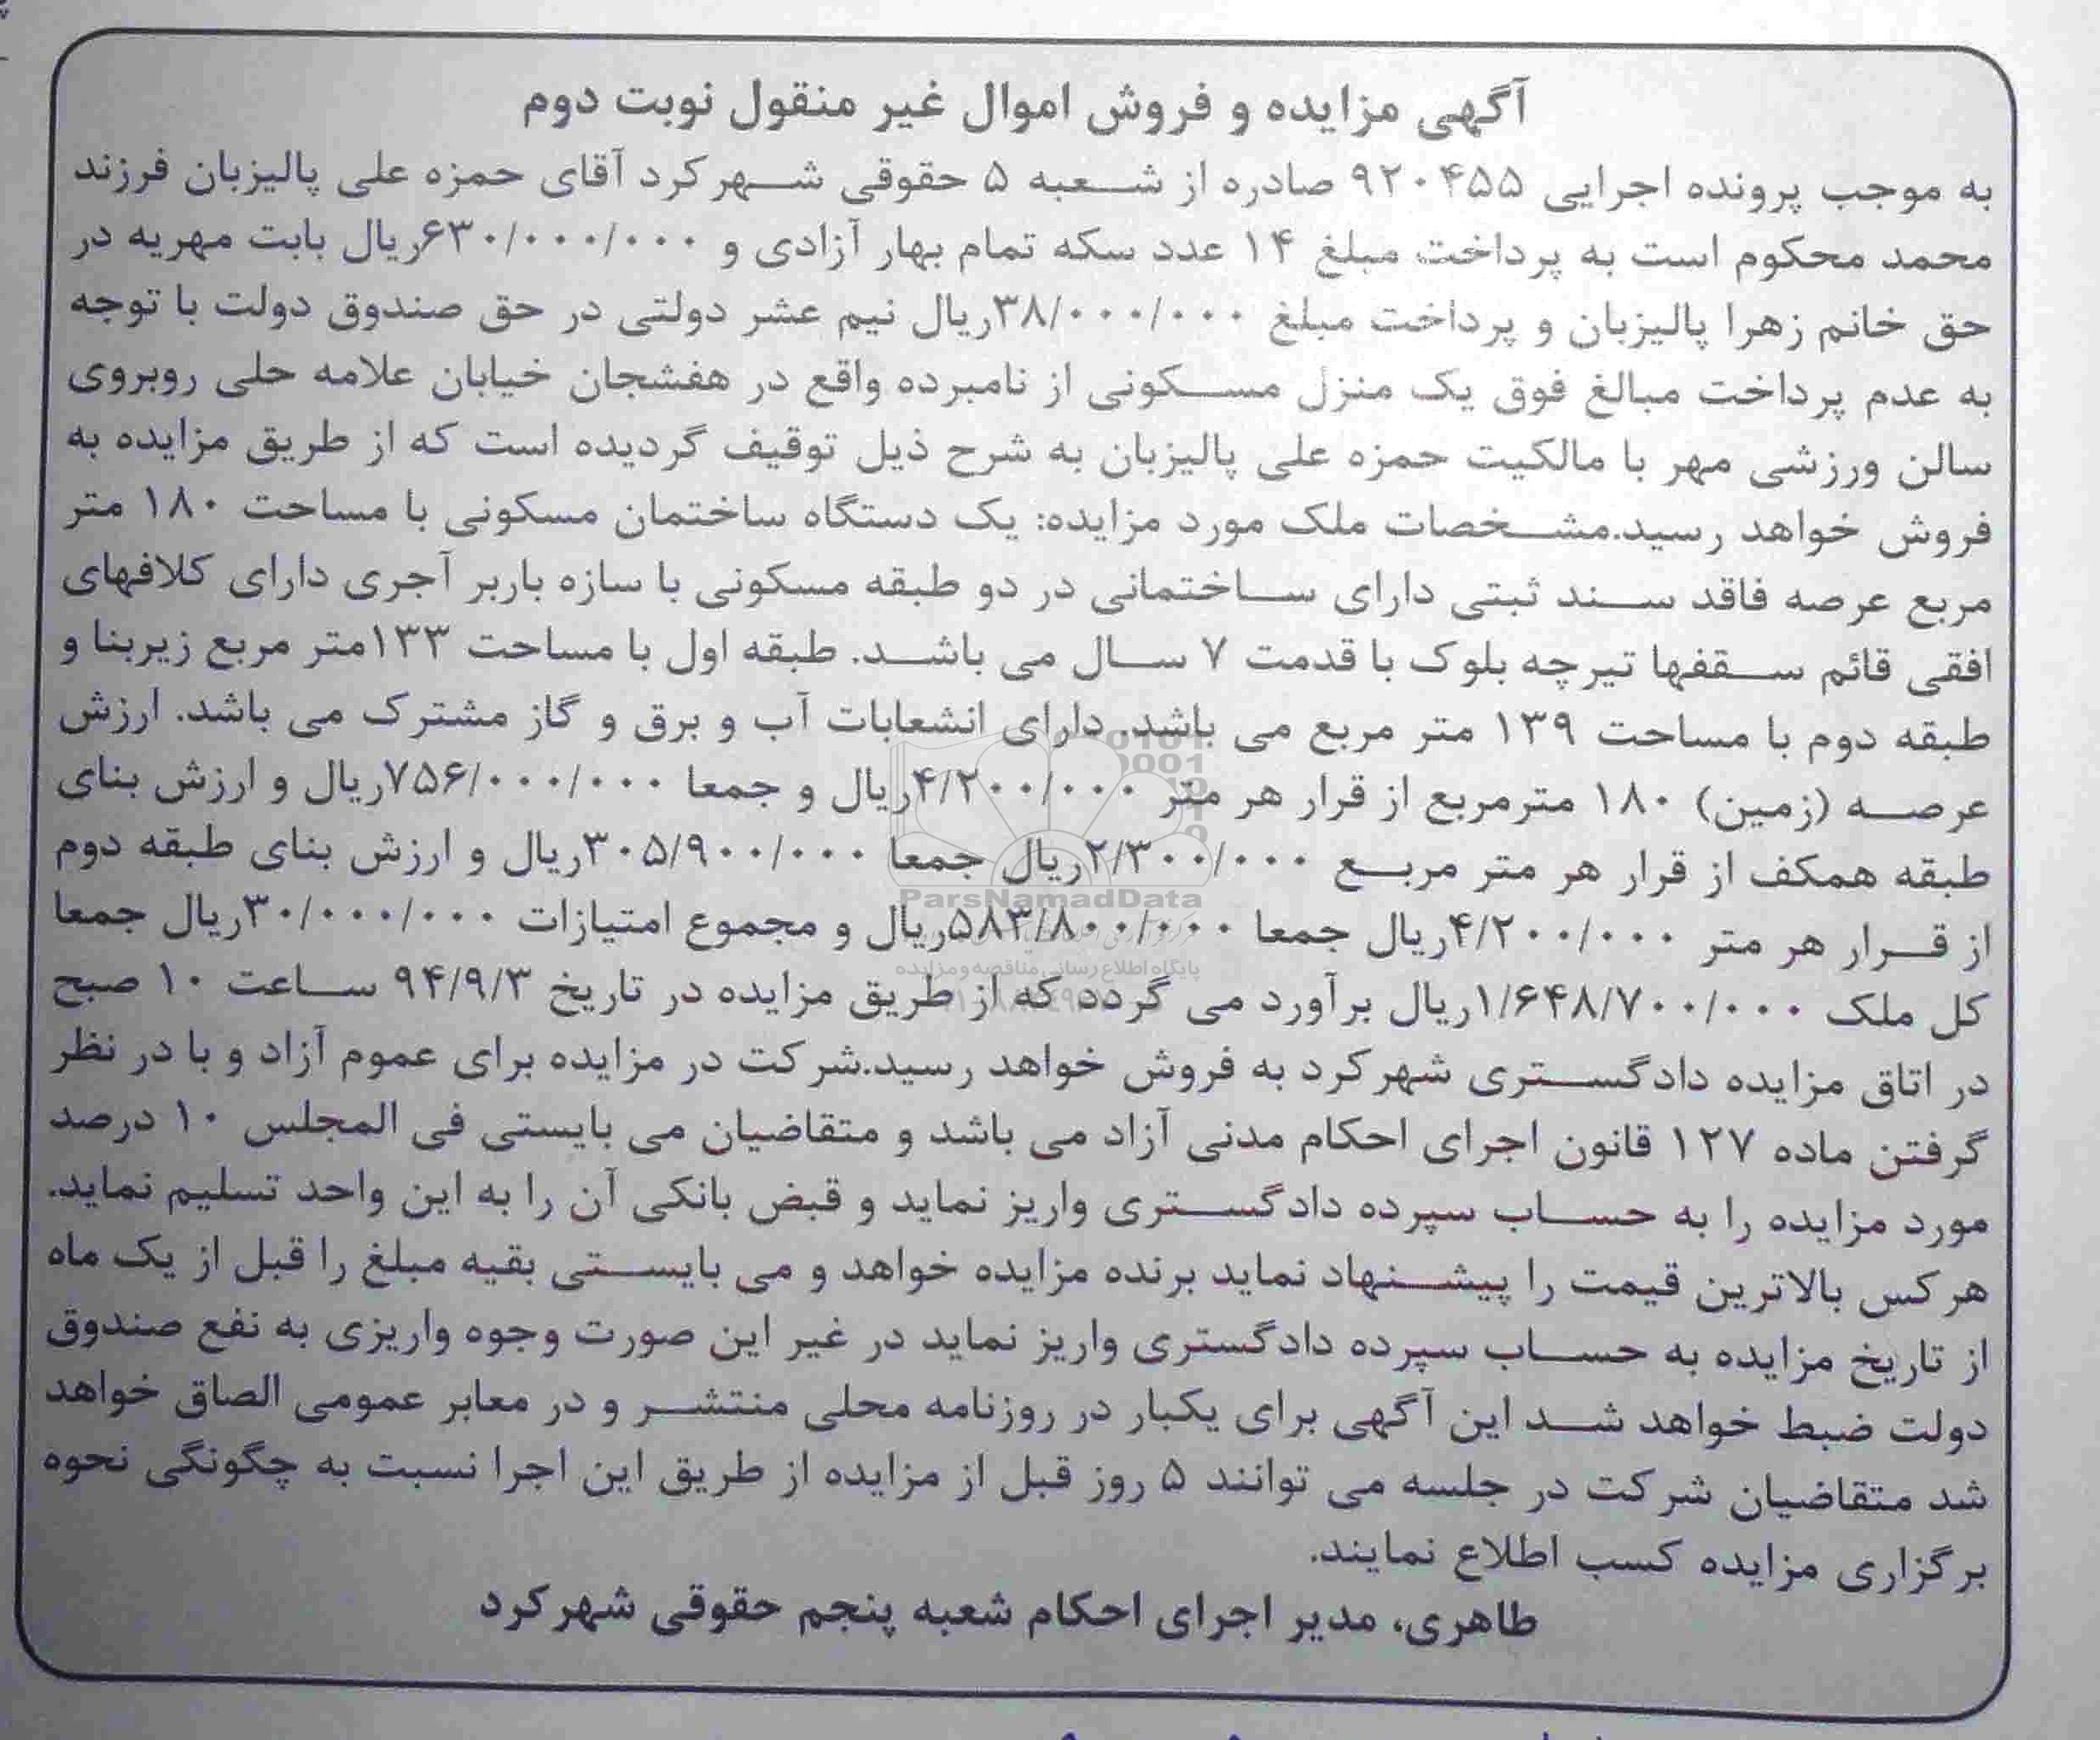 آگهی مزایده و فروش اموال غیر منقول نوبت دوم
به موجب پرونده اجرایی ۹۲۰۴۵۵ صادره از شعبه ۵ حقوقی شهرکرد آقای حمزه علی پالیزبان فرزند
محمد محکوم است به پرداخت مبلغ ۱۴ عدد سکه تمام بهار آزادی و ۶۳۰/۰۰۰/۰۰۰ریال بابت مهریه در
حق خانم زهرا پالیزبان و پرداخت مبلغ ۳۸/۰۰۰/۰۰۰ریال نیم عشر دولتی در حق صندوق دولت با توجه
به عدم پرداخت مبالغ فوق یک منزل مسکونی از نامبرده واقع در هفشجان خیابان علامه حلی روبروی
سالن ورزشی مهر با مالکیت حمزه علی پالیزبان به شرح ذیل توقیف گردیده است که از طریق مزایده به
فروش خواهد رسید.مشخصات ملک مورد مزایده: یک دستگاه ساختمان مسکونی با مساحت ۱۸۰ متر
مربع عرصه فاقد سند ثبتی دارای ساختمانی در دو طبقه مسکونی با سازه باربر آجری دارای کلافهای
افقی قائم سقفها تیرچه بلوک با قدمت ۷ سال می باشد. طبقه اول با مساحت ۱۳۳متر مربع زیربنا و
طبقه دوم با مساحت ۱۳۹ متر مربع می باشد. دارای انشعابات آب و برق و گاز مشترک می باشد. ارزش
عرصه (زمین) ۱۸۰ مترمربع از قرار هر متر ۴/۲۰۰/۰۰۰ریال و جمعا ۷۵۶/۰۰۰/۰۰۰ریال و ارزش بنای
طبقه همکف از قرار هر متر مربع ۲/۳۰۰/۰۰۰ریال جمعا ۳۰۵/۹۰۰/۰۰۰ریال و ارزش بنای طبقه دوم
از قرار هر متر ۴/۲۰۰/۰۰۰ریال جمعا ۵۸۳/۸۰۰/۰۰۰ریال و مجموع امتیازات ۳۰/۰۰۰/۰۰۰ریال جمعا
کل ملک ۱/۶۴۸/۷۰۰/۰۰۰ریال برآورد می گردد که از طریق مزایده در تاریخ ۹۴/۹/۳ ساعت ۱۰ صبح
در اتاق مزایده دادگستری شهرکرد به فروش خواهد رسید.شرکت در مزایده برای عموم آزاد و با در نظر
گرفتن ماده ۱۲۷ قانون اجرای احکام مدنی آزاد می باشد و متقاضیان می بایستی فی المجلس ۱۰ درصد
مورد مزایده را به حساب سپرده دادگستری واریز نماید و قبض بانکی آن را به این واحد تسلیم نماید.
هرکس بالاترین قیمت را پیشنهاد نماید برنده مزایده خواهد و می بایستی بقیه مبلغ را قبل از یک ماه
از تاریخ مزایده به حساب سپرده دادگستری واریز نماید در غیر این صورت وجوه واریزی به نفع صندوق
دولت ضبط خواهد شد این آگهی برای یکبار در روزنامه محلی منتشر و در معابر عمومی الصاق خواهد
شد متقاضیان شرکت در جلسه می توانند ۵ روز قبل از مزایده از طریق این اجرا نسبت به چگونگی نحوه
برگزاری مزایده کسب اطلاع نمایند.
طاهری، مدیر اجرای احکام شعبه پنجم حقوقی شهرکرد
ParsNamadData
پایگاه اطلاع رسانی مناقصه و مزایده